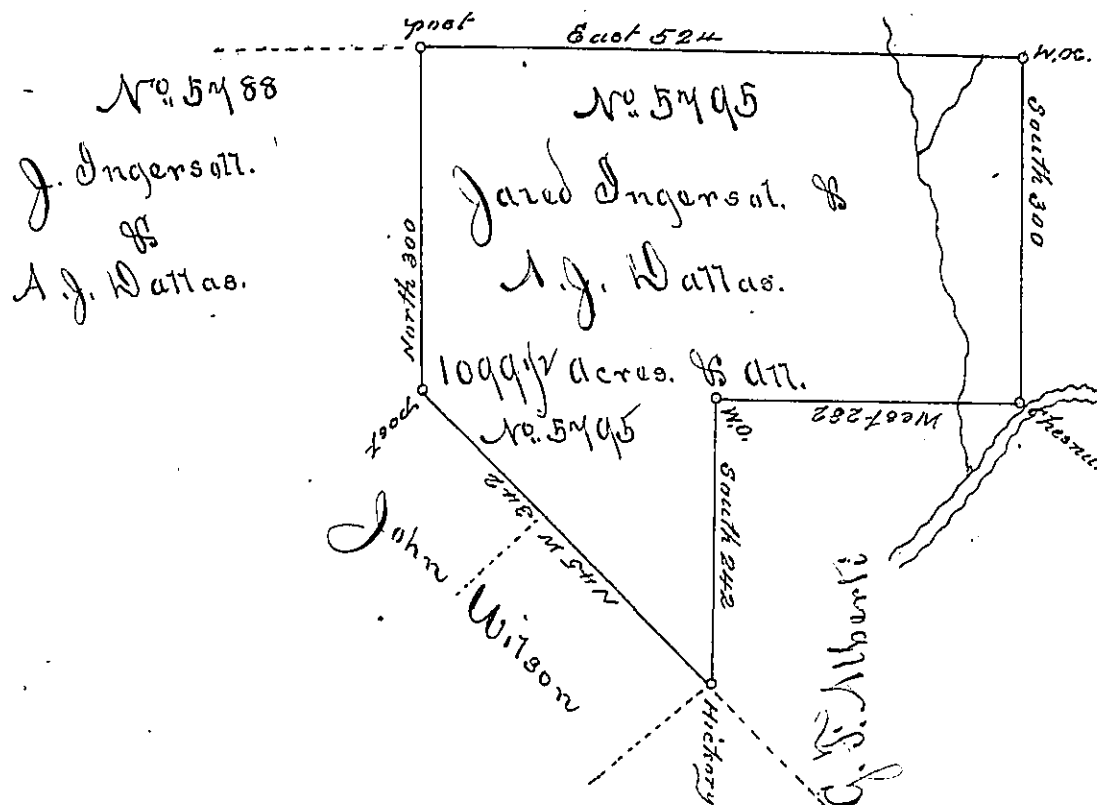 post
East 524
W.oc.
No. 5788
J. Ingersoll.
&
A. J. Dallas.
No. 5795
Jared Ingersol. &
A. J. Dallas.
1099 1/2 acres. & all.
No. 5795
North 300
South 300
post
West 282
W.O.
Chesnu
N 45 W 342
South 242
John Wilson
Hickory